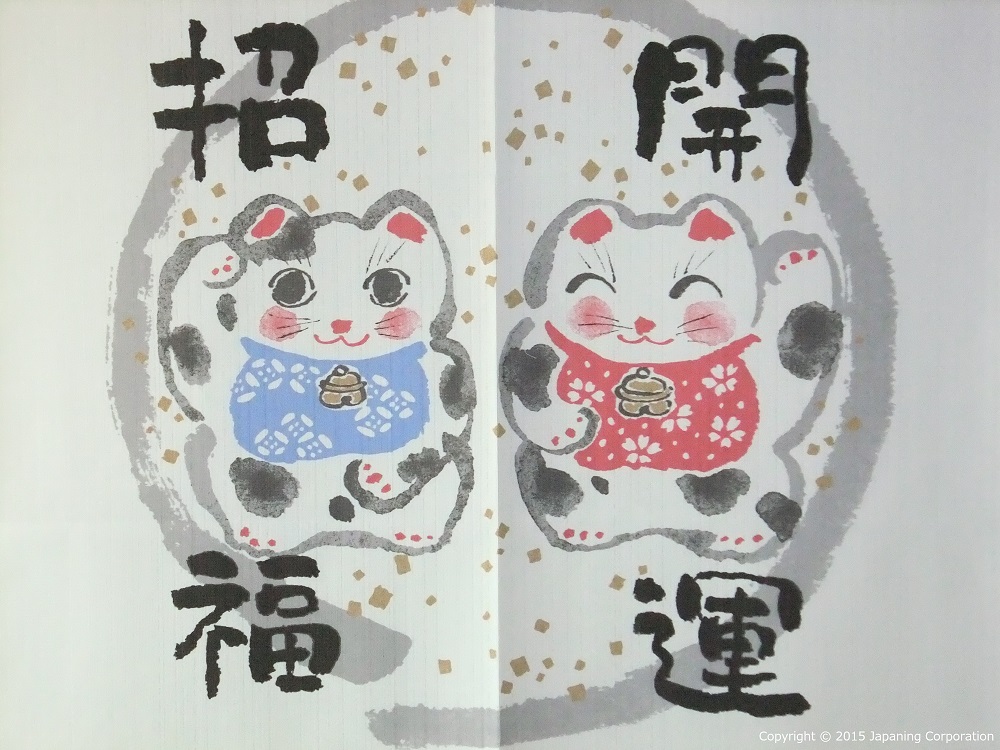 開運
招福
Copyright © 2015 Japaning Corporation